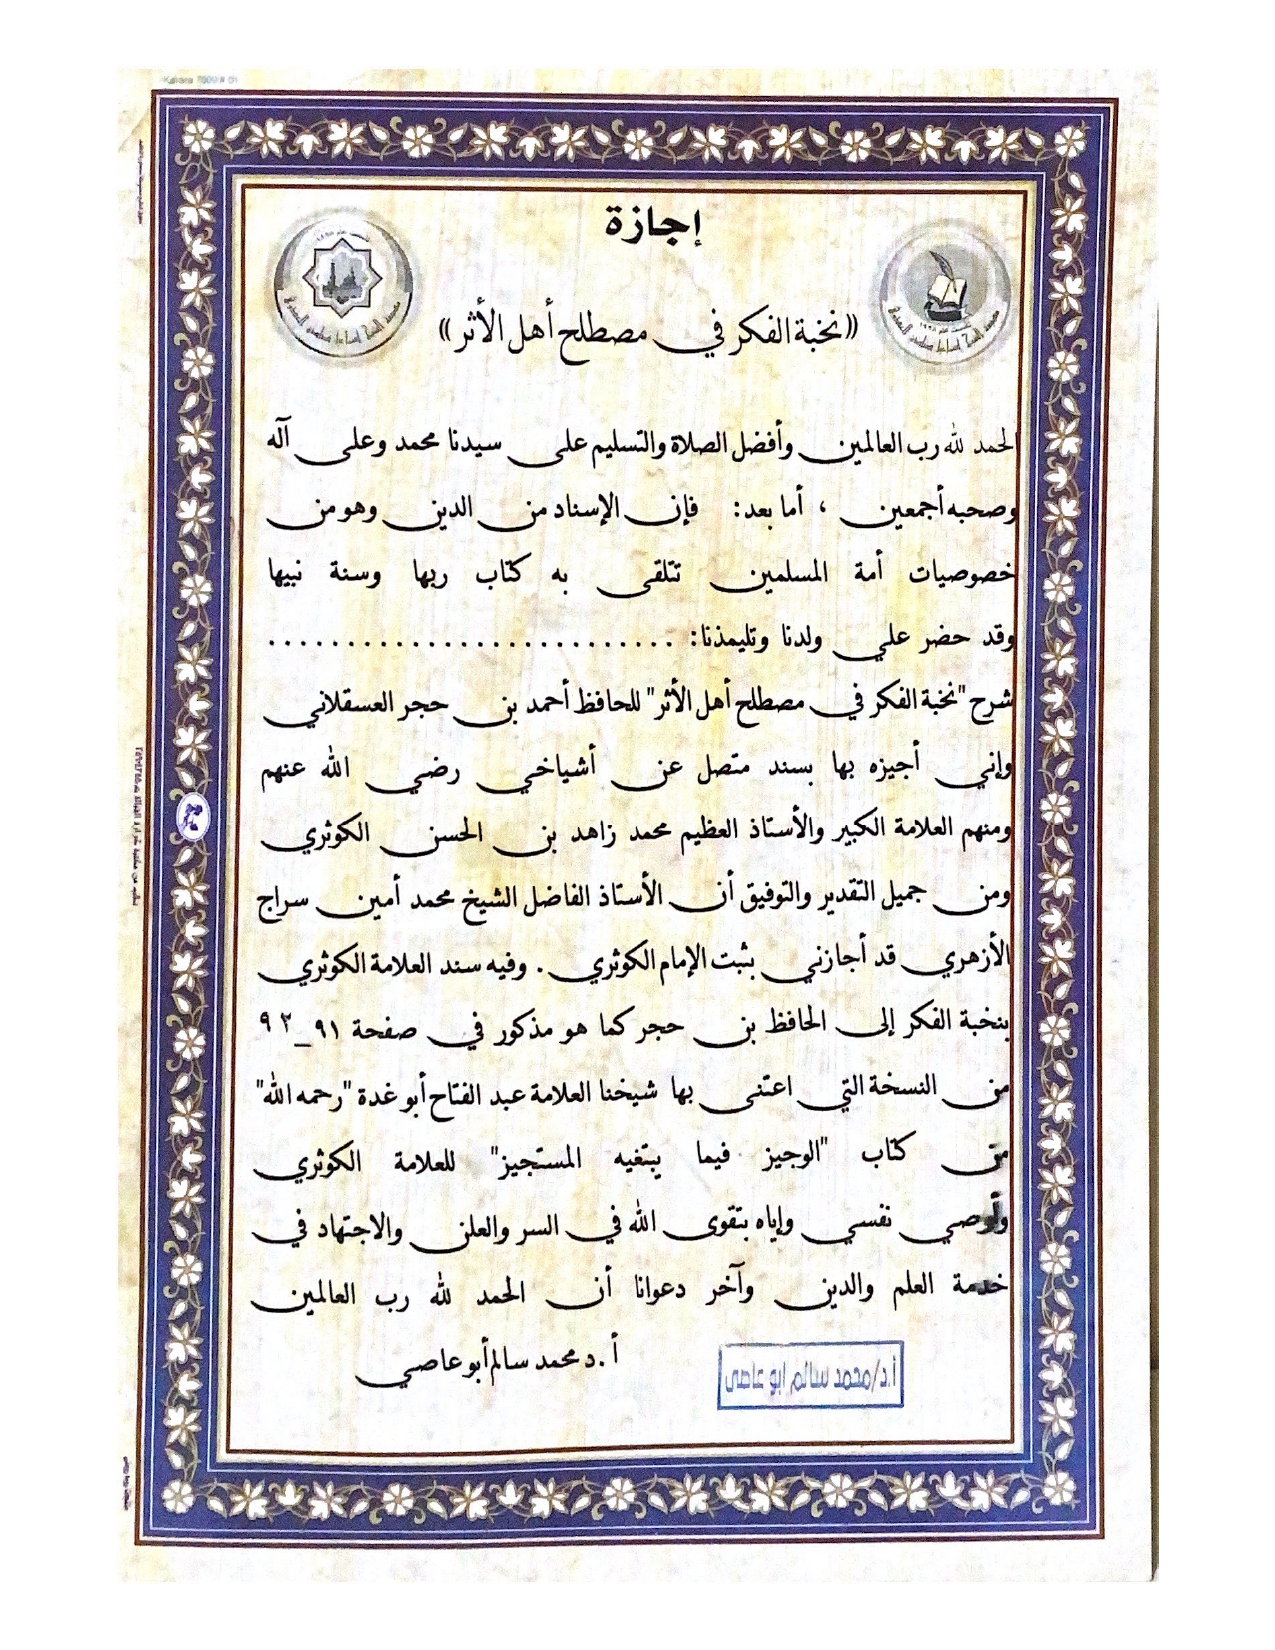 إجازة
((نخبة الفكر في مصطلح أهل الأثر))
الحمد لله رب العالمين وأفضل الصلاة والتسليم على سيدنا محمد وعلى آله
وصحبه أجمعين ، أما بعد: فإن الإسناد من الدين وهو من
خصوصيات أمة المسلمين تتلقى به كتاب ربها وسنة نبيها
وقد حضر علي ولدنا وتليمذنا: ...........................
شرح "نخبة الفكر في مصطلح أهل الأثر" للحافظ أحمد بن حجر العسقلاني
وإني أجيزه بها بسند متصل عن أشياخي رضي الله عنهم
ومنهم العلامة الكبير والأستاذ العظيم محمد زاهد بن الحسن الكوثري
ومن جميل التقدير والتوفيق أن الأستاذ الفاضل الشيخ محمد أمين سراج
الأزهري قد أجازني بثبت الإمام الكوثري . وفيه سند العلامة الكوثري
بنخبة الفكر إلى الحافظ بن حجر كما هو مذكور في صفحة ٩١_٩٢
من النسخة التي اعتنى بها شيخنا العلامة عبد الفتاح أبو غدة "رحمه الله"
من كتاب "الوجيز فيما يبتغيه المستجيز" للعلامة الكوثري
وأوصي نفسي وإياه بتقوى الله في السر والعلن والاجتهاد في
خدمة العلم والدين وآخر دعوانا أن الحمد لله رب العالمين
أ.د محمد سالم أبو عاصي
أ.د/محمد سالم ابو عاصى